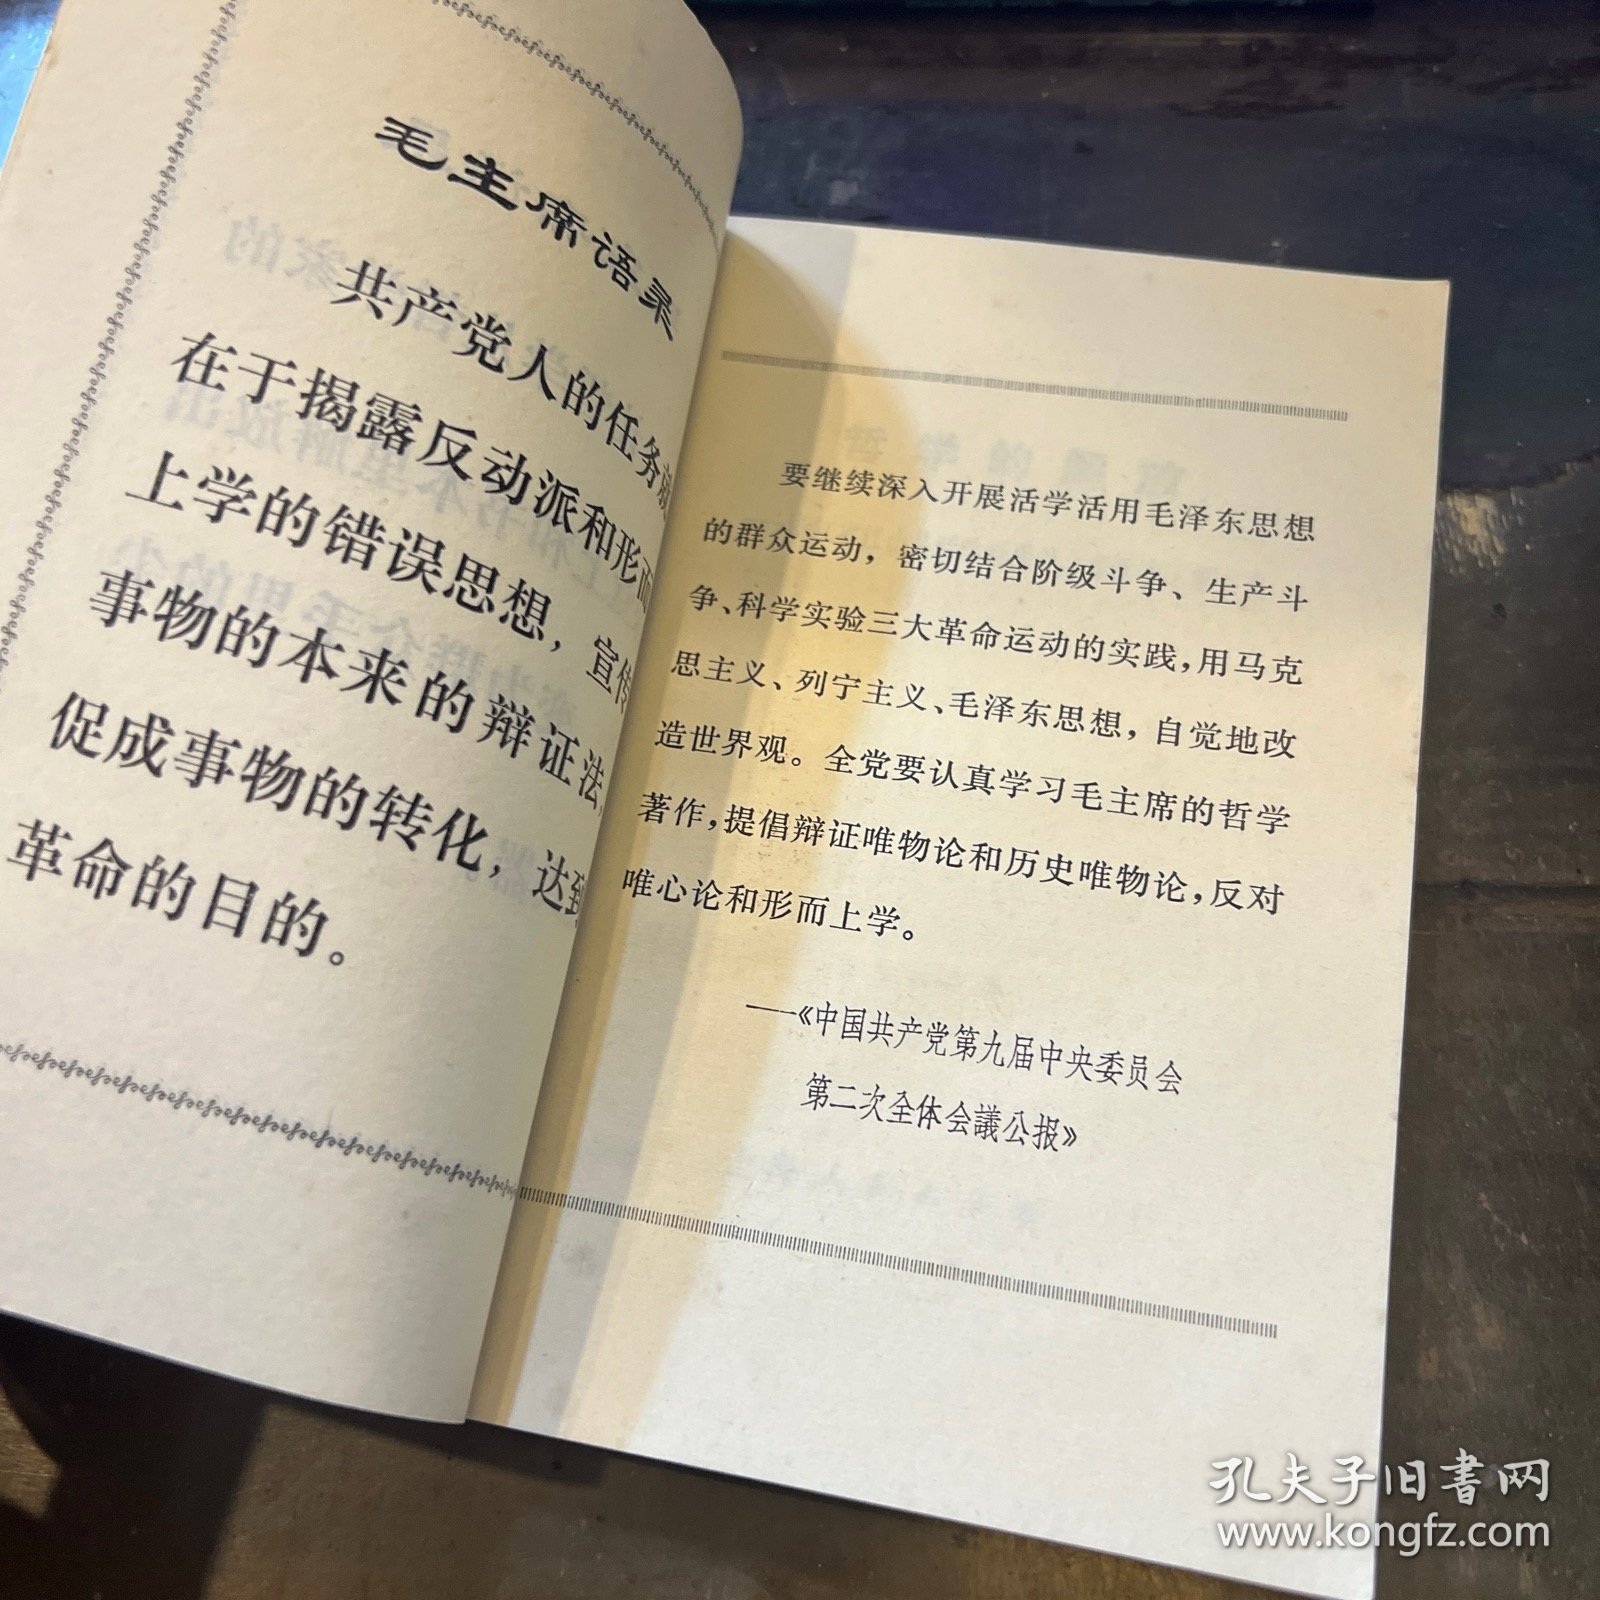 毛主席语录
共产党人的任务就
在于揭露反动派和形而
上学的错误思想，宣传
事物的本来的辩证法，
促成事物的转化，达到
革命的目的。
要继续深入开展活学活用毛泽东思想
的群众运动，密切结合阶级斗争、生产斗
争、科学实验三大革命运动的实践，用马克
思主义、列宁主义、毛泽东思想，自觉地改
造世界观。全党要认真学习毛主席的哲学
著作，提倡辩证唯物论和历史唯物论，反对
唯心论和形而上学。
——《中国共产党第九届中央委员会
第二次全体会議公报》
孔夫子旧书网
www.kongfz.com